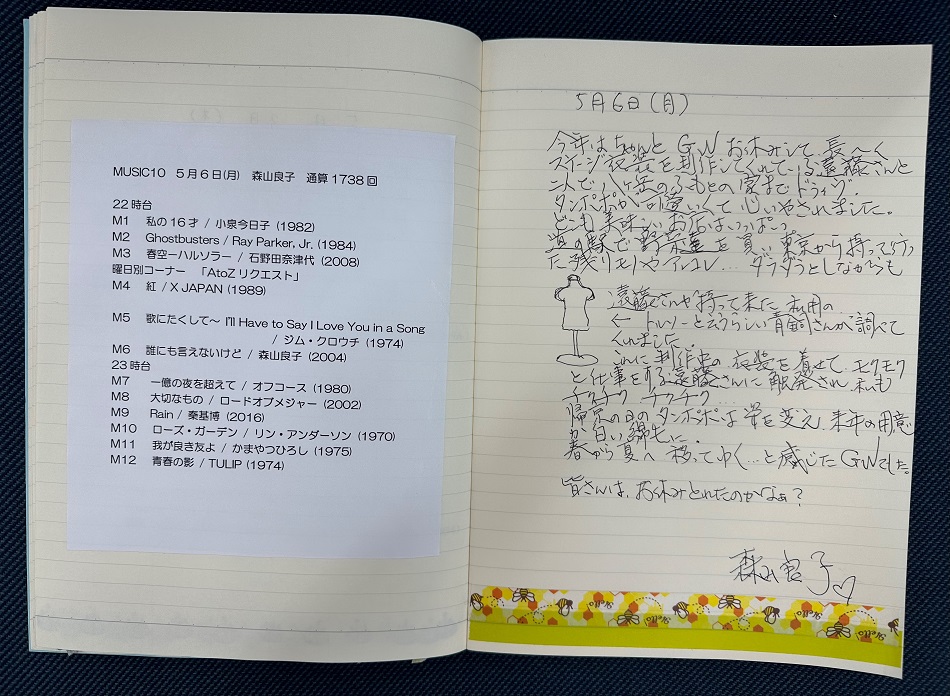 MUSIC10 5月6日(月) 森山良子 通算1738回
22時台
M1 私の16才 / 小泉今日子 (1982)
M2 Ghostbusters / Ray Parker, Jr. (1984)
M3 春空~ハルソラ~ / 石野田奈津代 (2008)
曜日別コーナー 「AtoZ リクエスト」
M4 紅 / X JAPAN (1989)
M5 歌にたくして~ I'll Have to Say I Love You in a Song
/ ジム・クロウチ (1974)
M6 誰にも言えないけど / 森山良子 (2004)
23時台
M7 一億の夜を超えて / オフコース (1980)
M8 大切なもの / ロードオブメジャー (2002)
M9 Rain / 秦基博 (2016)
M10 ローズ・ガーデン / リン・アンダーソン (1970)
M11 我が良き友よ / かまやつひろし (1975)
M12 青春の影 / TULIP (1974)
5月6日(月)
今年はちゃんと GW お休みして 長〜く
ステージ衣装を制作してくれている遠藤さんと
二人で 八ヶ岳のふもとの家まで ドライヴ.
タンポポが可愛いくて 心いやされました.
どこも美味しいお店はいっぱい
道の駅で野菜を買い 東京から持って行っ
た残りモノやアレコレ... ダラダラとしながらも
遠藤さんが持って来た 私用の
← トルソーと云うらしい 青嗣さんが調べて
くれました.
これに制作中の衣装を着せて モクモク
と仕事をする遠藤さんに触発され 私も
チクチク チクチク...
帰京の日のタンポポは姿を変え 来年の用意
か 白い綿毛に.
春から夏へ移ってゆく... と感じたGWでした。
皆さんは、お休みとれたのかなぁ?
森山良子♡
Hello
Hello
Hello